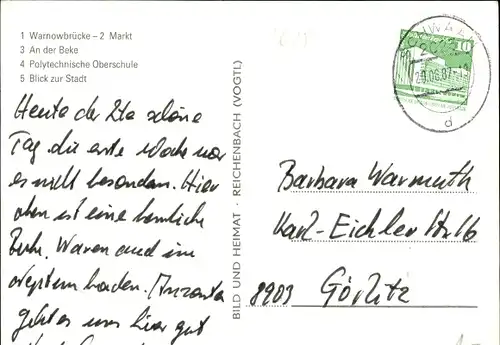 1 Warnowbrücke – 2 Markt
3 An der Beke
4 Polytechnische Oberschule
5 Blick zur Stadt
Heute der 2te schöne
Tag die erste Woche war
es nicht besonders. Hier
oben ist eine herrliche
Ruhe. Waren auch im
baden. Ansonsten
geht es uns hier gut
BILD UND HEIMAT · REICHENBACH (VOGTL)
SCHWAAN
10
20.06.87
d
Barbara Warmuth
Karl-Eichler Str 16
8903 Görlitz